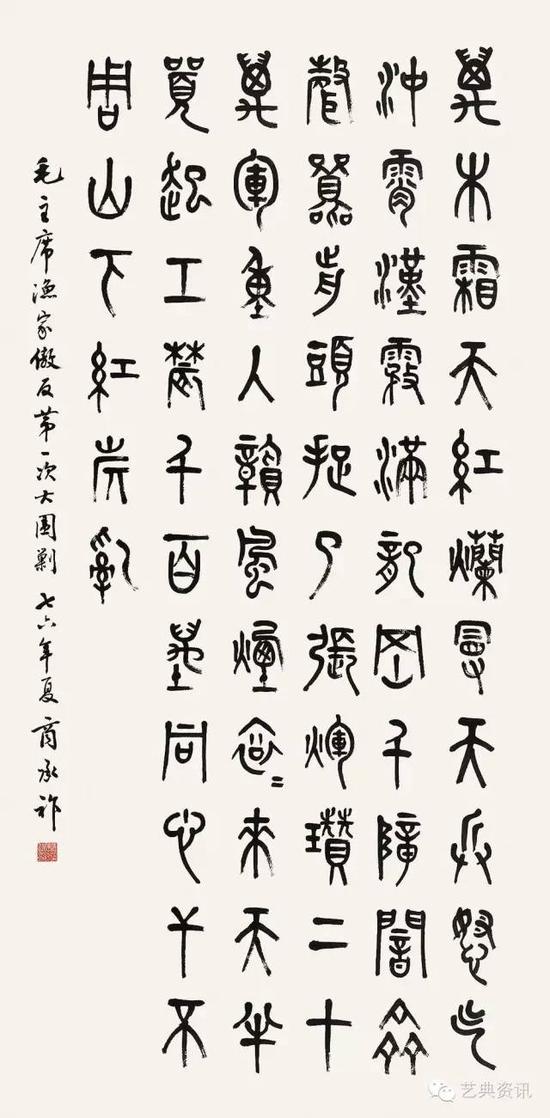 萬木霜天紅爛曼天兵怒气
沖霄漢霧滿龍岡千障闇齊
聲喚前頭捉了張煇瓚二十
萬軍重入贛風煙衮〻來天半
喚起工農千百萬同心干不
周山下紅旂亂
毛主席漁家傲反第一次大圍剿 七六年夏 商承祚
艺典资讯